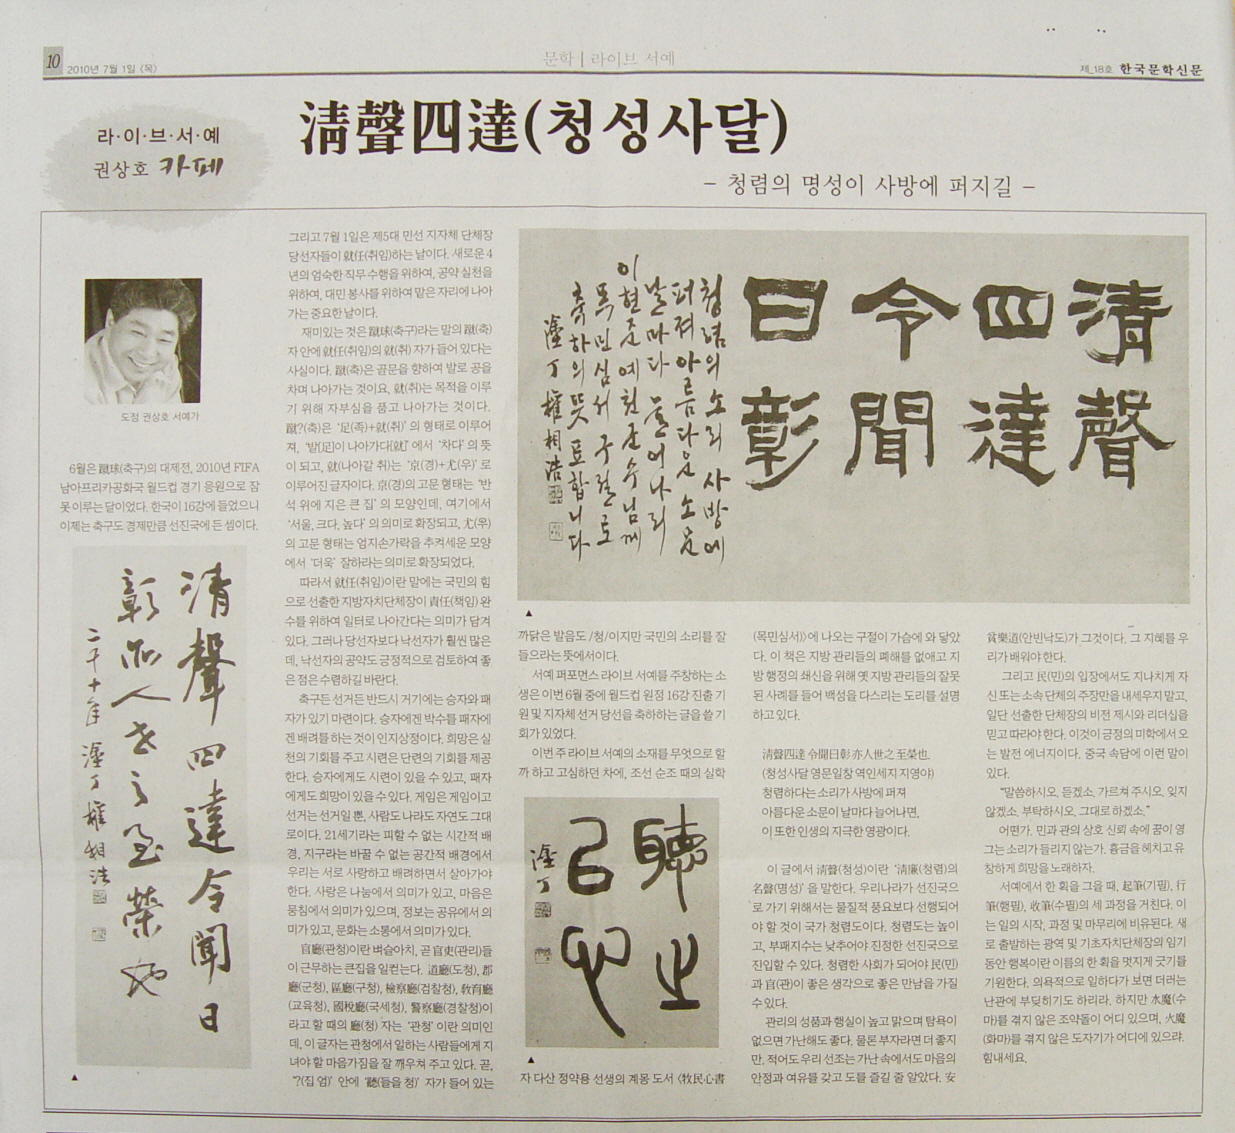 10
2010년 7월 1일 (목)
문학 | 라이브 서예
제_18호 한국문학신문
라·이·브·서·예
권상호 카페
淸聲四達(청성사달)
– 청렴의 명성이 사방에 퍼지길 –
도정 권상호 서예가
6월은 蹴球(축구)의 대제전, 2010년 FIFA
남아프리카공화국 월드컵 경기 응원으로 잠
못 이루는 달이었다. 한국이 16강에 들었으니
이제는 축구도 경제만큼 선진국에 든 셈이다.
清聲四達令聞日
彰亦人世之至榮也
二千十年 塗丁 權相浩
그리고 7월 1일은 제5대 민선 지자체 단체장
당선자들이 就任(취임)하는 날이다. 새로운 4
년의 엄숙한 직무 수행을 위하여, 공약 실천을
위하여, 대민 봉사를 위하여 맡은 자리에 나아
가는 중요한 날이다.
재미있는 것은 蹴球(축구)라는 말의 蹴(축)
자 안에 就任(취임)의 就(취) 자가 들어 있다는
사실이다. 蹴(축)은 골문을 향하여 발로 공을
차며 나아가는 것이요, 就(취)는 목적을 이루
기 위해 자부심을 품고 나아가는 것이다.
蹴?(축)은 ‘足(족)+就(취)’의 형태로 이루어
져, ‘발[足]이 나아가다[就]’에서 ‘차다’의 뜻
이 되고, 就(나아갈 취)는 ‘京(경)+尤(우)’로
이루어진 글자이다. 京(경)의 고문 형태는 ‘반
석 위에 지은 큰 집’의 모양인데, 여기에서
‘서울, 크다, 높다’의 의미로 확장되고, 尤(우)
의 고문 형태는 엄지손가락을 추켜세운 모양
에서 ‘더욱’ 잘하라는 의미로 확장되었다.
따라서 就任(취임)이란 말에는 국민의 힘
으로 선출한 지방자치단체장이 責任(책임) 완
수를 위하여 일터로 나아간다는 의미가 담겨
있다. 그러나 당선자보다 낙선자가 훨씬 많은
데, 낙선자의 공약도 긍정적으로 검토하여 좋
은 점은 수렴하길 바란다.
축구든 선거든 반드시 거기에는 승자와 패
자가 있기 마련이다. 승자에겐 박수를 패자에
겐 배려를 하는 것이 인지상정이다. 희망은 실
천의 기회를 주고 시련은 단련의 기회를 제공
한다. 승자에게도 시련이 있을 수 있고, 패자
에게도 희망이 있을 수 있다. 게임은 게임이고
선거는 선거일 뿐, 사람도 나라도 자연도 그대
로이다. 21세기라는 피할 수 없는 시간적 배
경, 지구라는 바꿀 수 없는 공간적 배경에서
우리는 서로 사랑하고 배려하면서 살아가야
한다. 사랑은 나눔에서 의미가 있고, 마음은
뭉침에서 의미가 있으며, 정보는 공유에서 의
미가 있고, 문화는 소통에서 의미가 있다.
官廳(관청)이란 벼슬아치, 곧 官吏(관리)들
이 근무하는 큰집을 일컫는다. 道廳(도청), 郡
廳(군청), 區廳(구청), 檢察廳(검찰청), 敎育廳
(교육청), 國稅廳(국세청), 警察廳(경찰청)이
라고 할 때의 廳(청) 자는 ‘관청’이란 의미인
데, 이 글자는 관청에서 일하는 사람들에게 지
녀야 할 마음가짐을 잘 깨우쳐 주고 있다. 곧,
‘?(집 엄)’ 안에 ‘聽(들을 청)’ 자가 들어 있는
清聲
四達
令聞
日彰
청렴의 소리 사방에
퍼져 아름다운 소문
날마다 늘어나리
이현준 예천군수님께
목민심서 구절로
축하의 뜻 표합니다
塗丁 權相浩
까닭은 발음도 /청/이지만 국민의 소리를 잘
들으라는 뜻에서이다.
서예 퍼포먼스 라이브 서예를 주창하는 소
생은 이번 6월 중에 월드컵 원정 16강 진출 기
원 및 지자체 선거 당선을 축하하는 글을 쓸 기
회가 있었다.
이번 주 라이브 서예의 소재를 무엇으로 할
까 하고 고심하던 차에, 조선 순조 때의 실학
聽之
己心
塗丁
자 다산 정약용 선생의 계몽 도서 〈牧民心書
(목민심서)〉에 나오는 구절이 가슴에 와 닿았
다. 이 책은 지방 관리들의 폐해를 없애고 지
방 행정의 쇄신을 위해 옛 지방 관리들의 잘못
된 사례를 들어 백성을 다스리는 도리를 설명
하고 있다.
淸聲四達 令聞日彰 亦人世之至榮也.
(청성사달 영문일창 역인세지 지영야)
청렴하다는 소리가 사방에 퍼져
아름다운 소문이 날마다 늘어나면,
이 또한 인생의 지극한 영광이다.
이 글에서 淸聲(청성)이란 ‘淸廉(청렴)의
名聲(명성)’을 말한다. 우리나라가 선진국으
로 가기 위해서는 물질적 풍요보다 선행되어
야 할 것이 국가 청렴도이다. 청렴도는 높이
고, 부패지수는 낮추어야 진정한 선진국으로
진입할 수 있다. 청렴한 사회가 되어야 民(민)
과 官(관)이 좋은 생각으로 좋은 만남을 가질
수 있다.
관리의 성품과 행실이 높고 맑으며 탐욕이
없으면 가난해도 좋다. 물론 부자라면 더 좋지
만, 적어도 우리 선조는 가난 속에서도 마음의
안정과 여유를 갖고 도를 즐길 줄 알았다. 安
貧樂道(안빈낙도)가 그것이다. 그 지혜를 우
리가 배워야 한다.
그리고 民(민)의 입장에서도 지나치게 자
신 또는 소속 단체의 주장만을 내세우지 말고,
일단 선출한 단체장의 비전 제시와 리더십을
믿고 따라야 한다. 이것이 긍정의 미학에서 오
는 발전 에너지이다. 중국 속담에 이런 말이
있다.
“말씀하시오, 듣겠소. 가르쳐 주시오, 잊지
않겠소. 부탁하시오, 그대로 하겠소.”
어떤가. 민과 관의 상호 신뢰 속에 꿈이 영
그는 소리가 들리지 않는가. 흉금을 헤치고 유
창하게 희망을 노래하자.
서예에서 한 획을 그을 때, 起筆(기필), 行
筆(행필), 收筆(수필)의 세 과정을 거친다. 이
는 일의 시작, 과정 및 마무리에 비유된다. 새
로 출발하는 광역 및 기초자치단체장의 임기
동안 행복이란 이름의 한 획을 멋지게 긋기를
기원한다. 의욕적으로 일하다가 보면 더러는
난관에 부딪히기도 하리라. 하지만 水魔(수
마)를 겪지 않은 조약돌이 어디 있으며, 火魔
(화마)를 겪지 않은 도자기가 어디에 있으랴.
힘내세요.